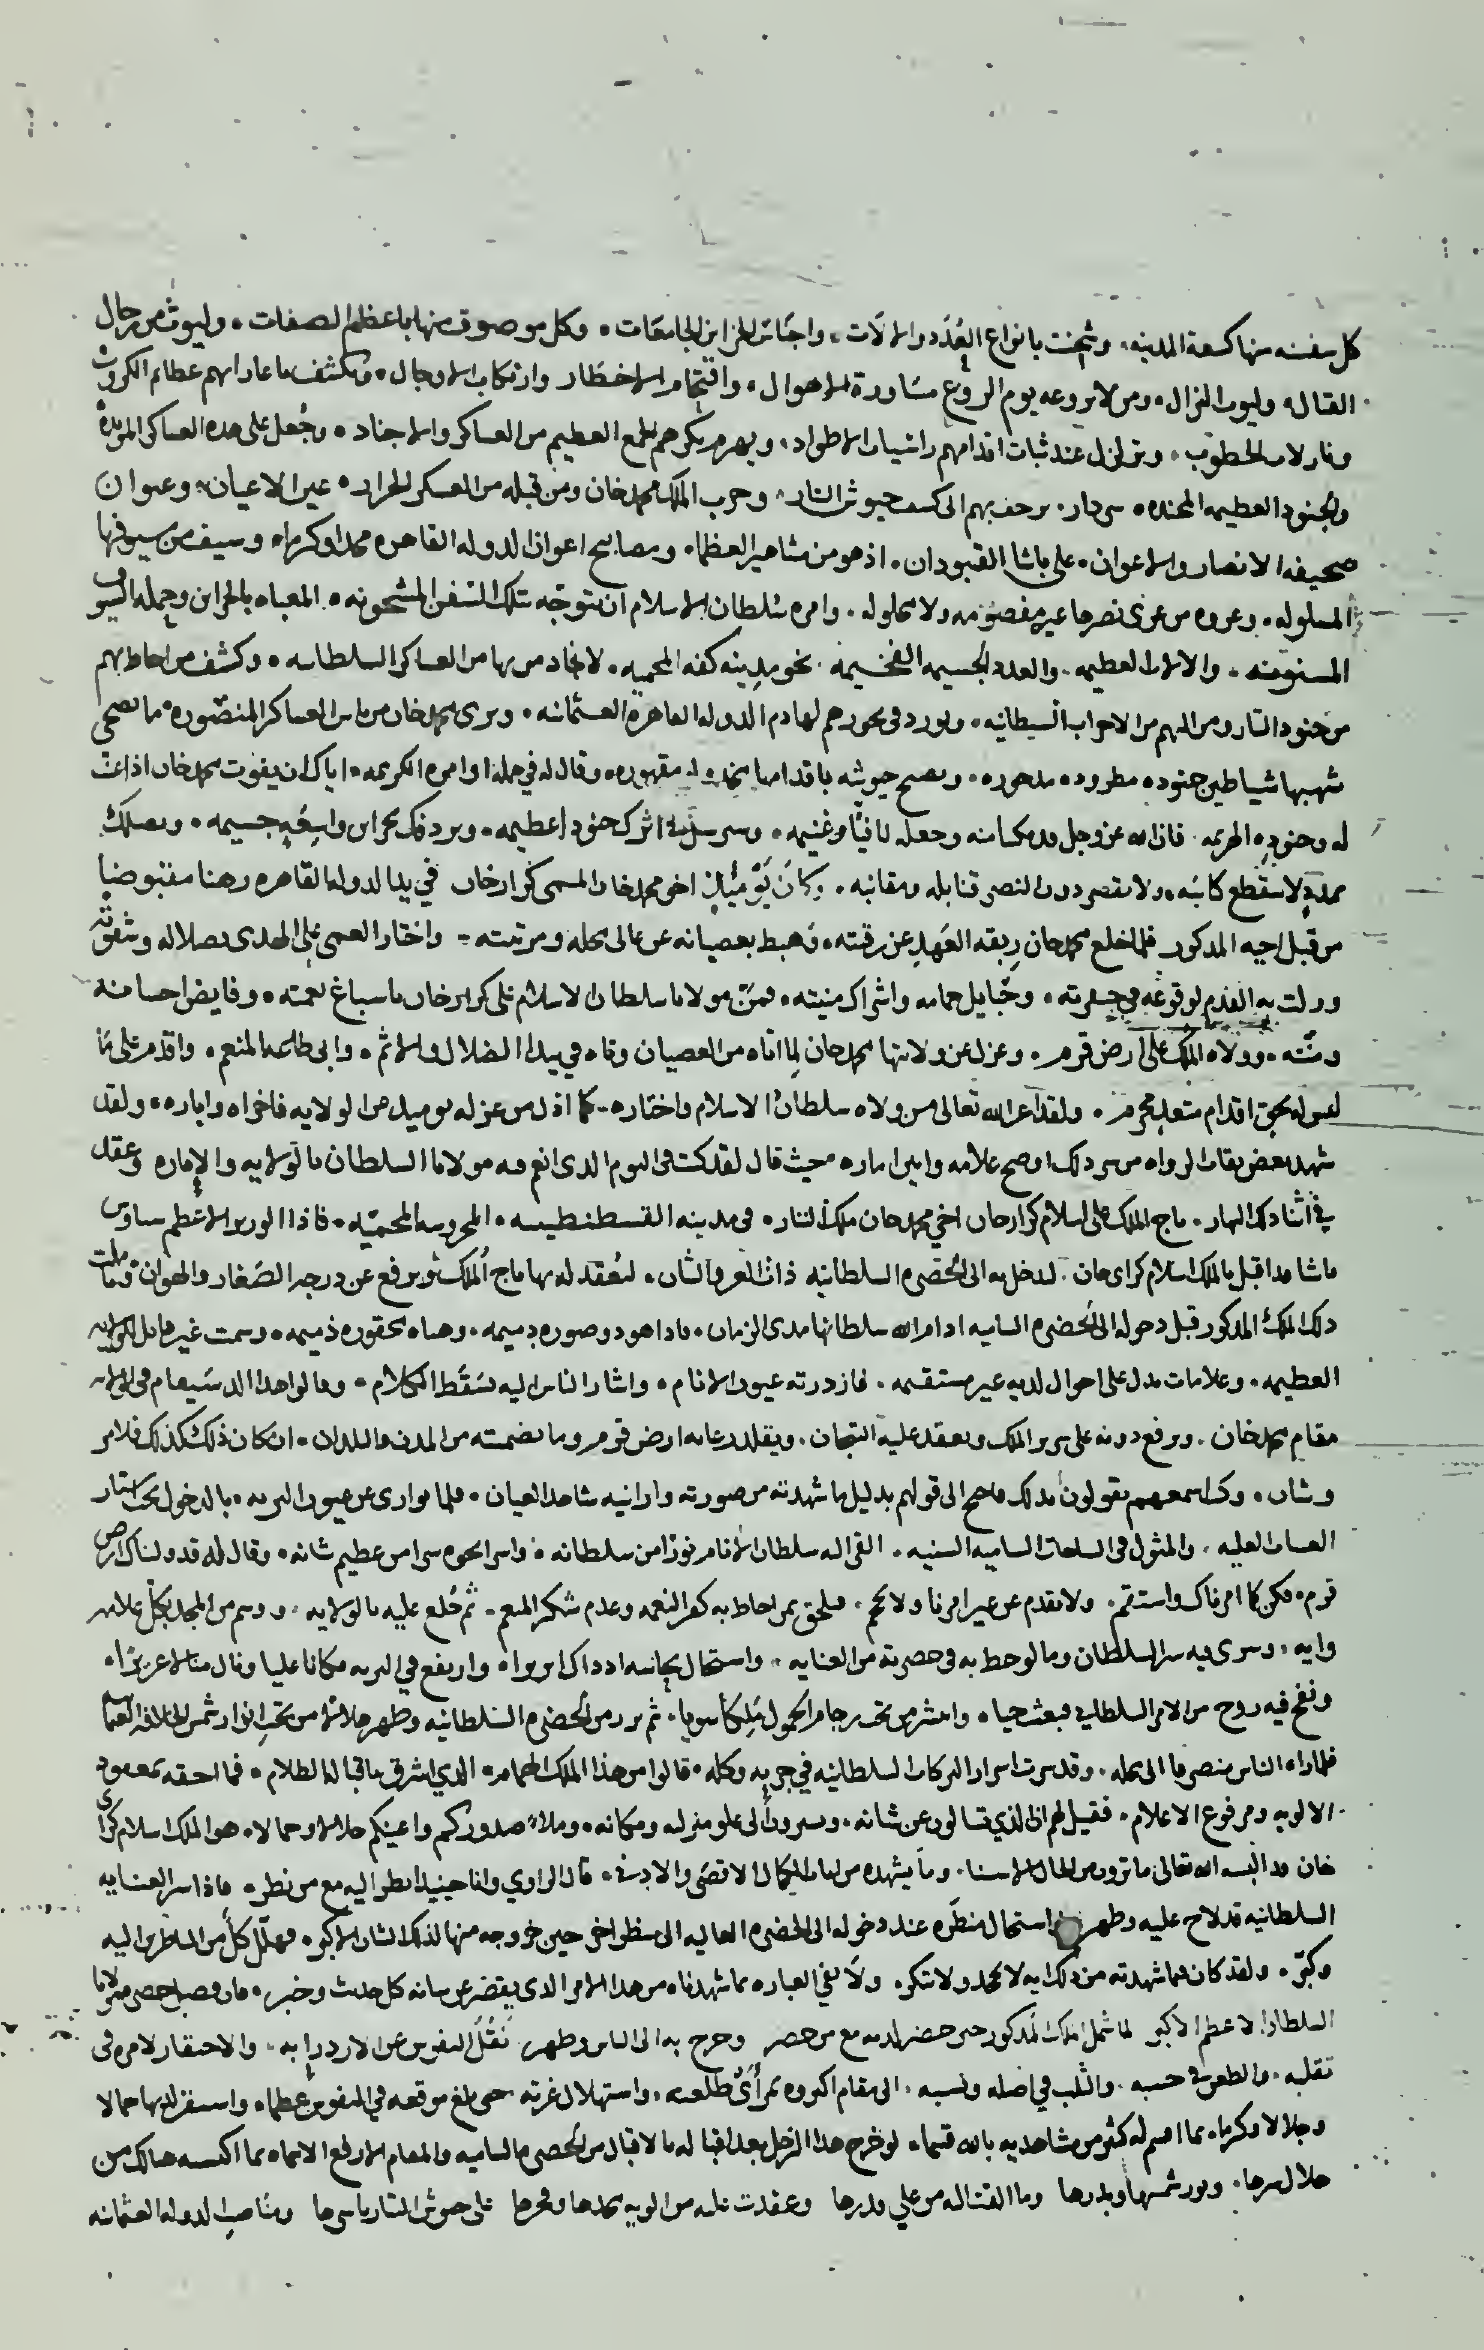 كل سفينه منها كسعة المدينه، وشحنت بانواع العُدَد والالات، واجناس الخزاين الجامعات، وكل موصوف منها باعظم الصفات، وليوث من رجال
القتال، وليوث النزال، ومن لا يروعه يوم الروع مساورة الاهوال، واقتحام الاخطار وارتكاب الاوجال، وتكشف عظايم الكروب
الخطوب، وتزلزل عند ثبات اقدامهم راسيات الاطواد، ويهزم بكرهم الجمع العظيم من العساكر والاجناد، وجُعل على هذه العساكر المويدة
والجنود العظيمه المجنده، سردار، يزحف بهم الى كسف جيوش التتار، وحرب الملك محمد خان ومن قبله من العسكر الجرار، عين الاعيان، وعنوان
صحيفه الانصار والاعوان، على باشا القبودان، اذ هو من مشاهير العظماء، ومصابيح اعوان الدوله القاهره مجدا وكرما، وسيف من سيوفها
المسلوله، وعروه من عرى نصرها غير مفصومه ولا محلوله، وامره سلطان الاسلام ان يتوجه بتلك السفن المشحونه، المعباه بالخزاين وجمله السيوف
المسنونه، والالات العظيمه، والعدد الجسيمه الفخيمه، نحو مدينه كفه المحميه، لانجاد من بها من العساكر السلطانيه، وكشف من احاط بهم
من جنود التتار ومن اليهم من الاحزاب الشيطانيه، ويورد في نحورهم لهاذم الدوله القاهره العثمانيه، ويرى محمد خان من باس العساكر المنصوره ما تضحى
شهبها شياطين جنوده مطروده مدحوره، وتصبح جيوشه باقدامها مقهوره، وقال له في جمله اوامره الكريمه، اياك ان يفوت محمد خان اذا عنت
له وجنوده الهزيمه، فان الله عز وجل قد مكننا منه وجعله لنا فيئًا وغنيمه، وسنرسل في اثرك جنودا عظيمه، ونردفك بخزاين واسعه جسيمه، ونصلك
بمدد لا تنقطع كتايبه، ولا تقصر دون النصر قنابله ومقانبه، وكان يومئذ اخو محمد خان المسمى كراز خان في يد الدوله القاهره رهنا مقبوضا
من قبل اخيه المذكور فلما خلع محمد خان ربقه العهد عن رقبته، وهبط بعصيانه عن عالى محله ومرتبته، واختار العمى على الهدى بضلاله وشقوته
وزلت به القدم لوقوعه في حفرته، وحبايل حمامه واشراك منيته، فمنّ مولانا سلطان الاسلام على كراز خان باسباغ نعمته، وفايض احسانه
ومنّته، وولاه الملك على ارض قرم، وعزل عن ولايتها محمد خان لما اتاه من العصيان وتاه في بيدا الضلال والاثم، وابى طاعه المنعم، واقدم على ما
اقدام متعد مجرم، ولقد اعز الله تعالى من ولاه سلطان الاسلام واختاره، كما اذل من عزله من الولايه فاخزاه واباره، ولقد
شهد بعض ثقات الرواه من سر ذلك اوضح علامه وابين اماره، حيث قال لقد كنت في اليوم الذي انعم فيه مولانا السلطان بالولايه والاماره وعقد
في اثناء ذلك النهار، تاج الملك على اسلام كراز خان اخي محمد خان ملك التتار، في مدينه القسطنطينيه، المحروسه المحميّه، فاذا الوزير الاعظم سياوس
باشا قد اقبل بالملك اسلام كراى خان، ليدخل به الى الحضره السلطانيه ذات العز والشان، ليُعقد له بها تاج الملك ويرفع عن درجه الصَغار والهوان، وتاملت
ذلك الملك المذكور قبل دخوله الى الحضره الساميه ادام الله سلطانها مدى الزمان، فاذا هو ذو صوره دميمه، وهياه محقوره ذميمه، وسمت غير قابل للولايه
العظيمه، وعلامات تدل على احوال لديه غير مستقيمه، فازدرته عيون الانام، واشار الناس اليه بسَقَط الكلام، وقالوا هذا الذي سيقام في الولايه
مقام محمد خان، ويرفع دونه على سرير الملك ويعقد عليه التيجان، ويقلد رعايه ارض قرم وما تضمنته من المدن والبلدان، ان كان ذلك كذلك فلامر
وشان، وكنت اسمعهم يقولون ذلك فاجنح الى قولهم بدليل ما شهدته من صورته وارانيه شاهد العيان، فلما توارى عن عيون البريه، بالدخول تحت استار
العليه، والمثول في الساحات الساميه السنيه، القى اليه سلطان الانام نورًا من سلطانه، واسرى نحوه سرا من عظيم شانه، وقال له قد وليناك ارض
قرم، فكن كما امرناك واستقم، ولا تقدم عن غير امرنا ولا تحجم، فتلحق بمن احاط به كفر النعمه وعدم شكر المنعم، ثم خُلع عليه بالولايه، ووسم من المجد بكل علامه
وايه، وسرى فيه سر السلطان وما لوحظ به في حضرته من العنايه، واستحال نحاسه اذ ذاك ابريزا، وارتفع في البريه مكانا عليا ونال منالا عزيزا،
ونفخ فيه روح من الامر السلطاني فبعث حيا، وانتشر من تحت رجام الخمول مَلِكا سويا، ثم برز من الحضره السلطانيه وظهر جلالا من تحت انوار شمس الخلافه العثمانيه
فلما راه الناس منصرفا الى محله، وقد سرت اسرار البركات السلطانيه في جزيه وكله، قالوا من هذا الملك الهمام، الذي اشرق باقباله الظلام، فما احقه بمعقود
الالويه ومرفوع الاعلام، فقيل لهم ان الذي تسالون عن شانه، وتسيرون الى علو منزله ومكانه، وملا صدوركم واعينكم جلالا وجمالا، هو الملك اسلام كراى
خان قد البسه الله تعالى ما ترون من الحال الاسنا، وما يشهده من الكمال الاقصى والادنى، قال الراوي وانا حينيذ انظر اليه مع من نظر، فاذا سر العنايه
السلطانيه قد لاح عليه وظهر، استحال منظره عند دخوله الى الحضره العاليه الى منظر اخر حين خروجه منها لذلك الشان الاكبر، فهلّل كل من الناظرين اليه
وكبّر، ولقد كان فيما شهدته من ذلك ايه لا تجحد ولا تنكر، ولا تفي العباره بما شهدناه من هذا الامر الذي يقصر عن بيانه كل حديث وخبر، مولانا
السلطان الاعظم الاكبر لما شمل الملك المذكور حين حضر لديه مع من حضر وخرج به الى الناس وظهر، نقل النفوس عن الازدرا به، والاحتقار لامره في
تقلبه، والطعن في حسبه، والثلب في اصله ونسبه، الى مقام اكبروه بمرأى طلعته، واستهلال غرته، حتى بلغ موقعه في النفوس عظما، واستقر لديها جمالا
وجلالا وكرما، بما اقسم له كثير من مشاهديه بالله قسما، لو خرج هذا الرجل بعد اقباله بالاقبال من الحضره الساميه والمقام الارفع الاسماه بما اكتسبه هنالك من
جلال سرها، ونور شمسها وبدرها وما القت اليه من علي قدرها وعقدت عليه من الويه مجدها وفخرها على جيوش التتار باسرها ومناصب الدوله العثمانيه